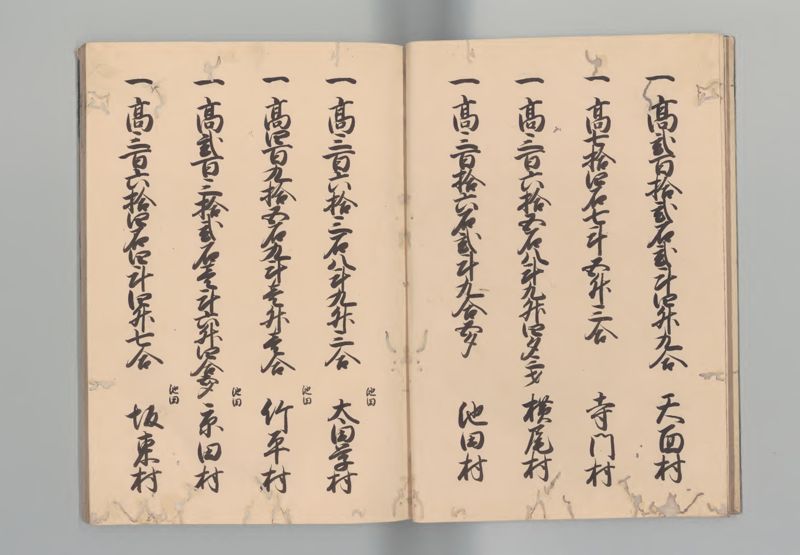 一 高弐百拾弐石弐斗四升九合 天面村
一 高七拾四石七斗五升三合 寺門村
一 高三百六拾五石八斗九升四夕三才 横尾村
一 高三百拾六石弐斗九合五夕 池田村
池田
一 高三百六拾三石八斗九升三合 太田学村
池田
一 高四百九拾五石九斗壱升壱合 竹平村
池田
一 高弐百三拾弐石壱斗六升四合五夕 京田村
池田
一 高三百六拾四石四斗四升七合 坂東村